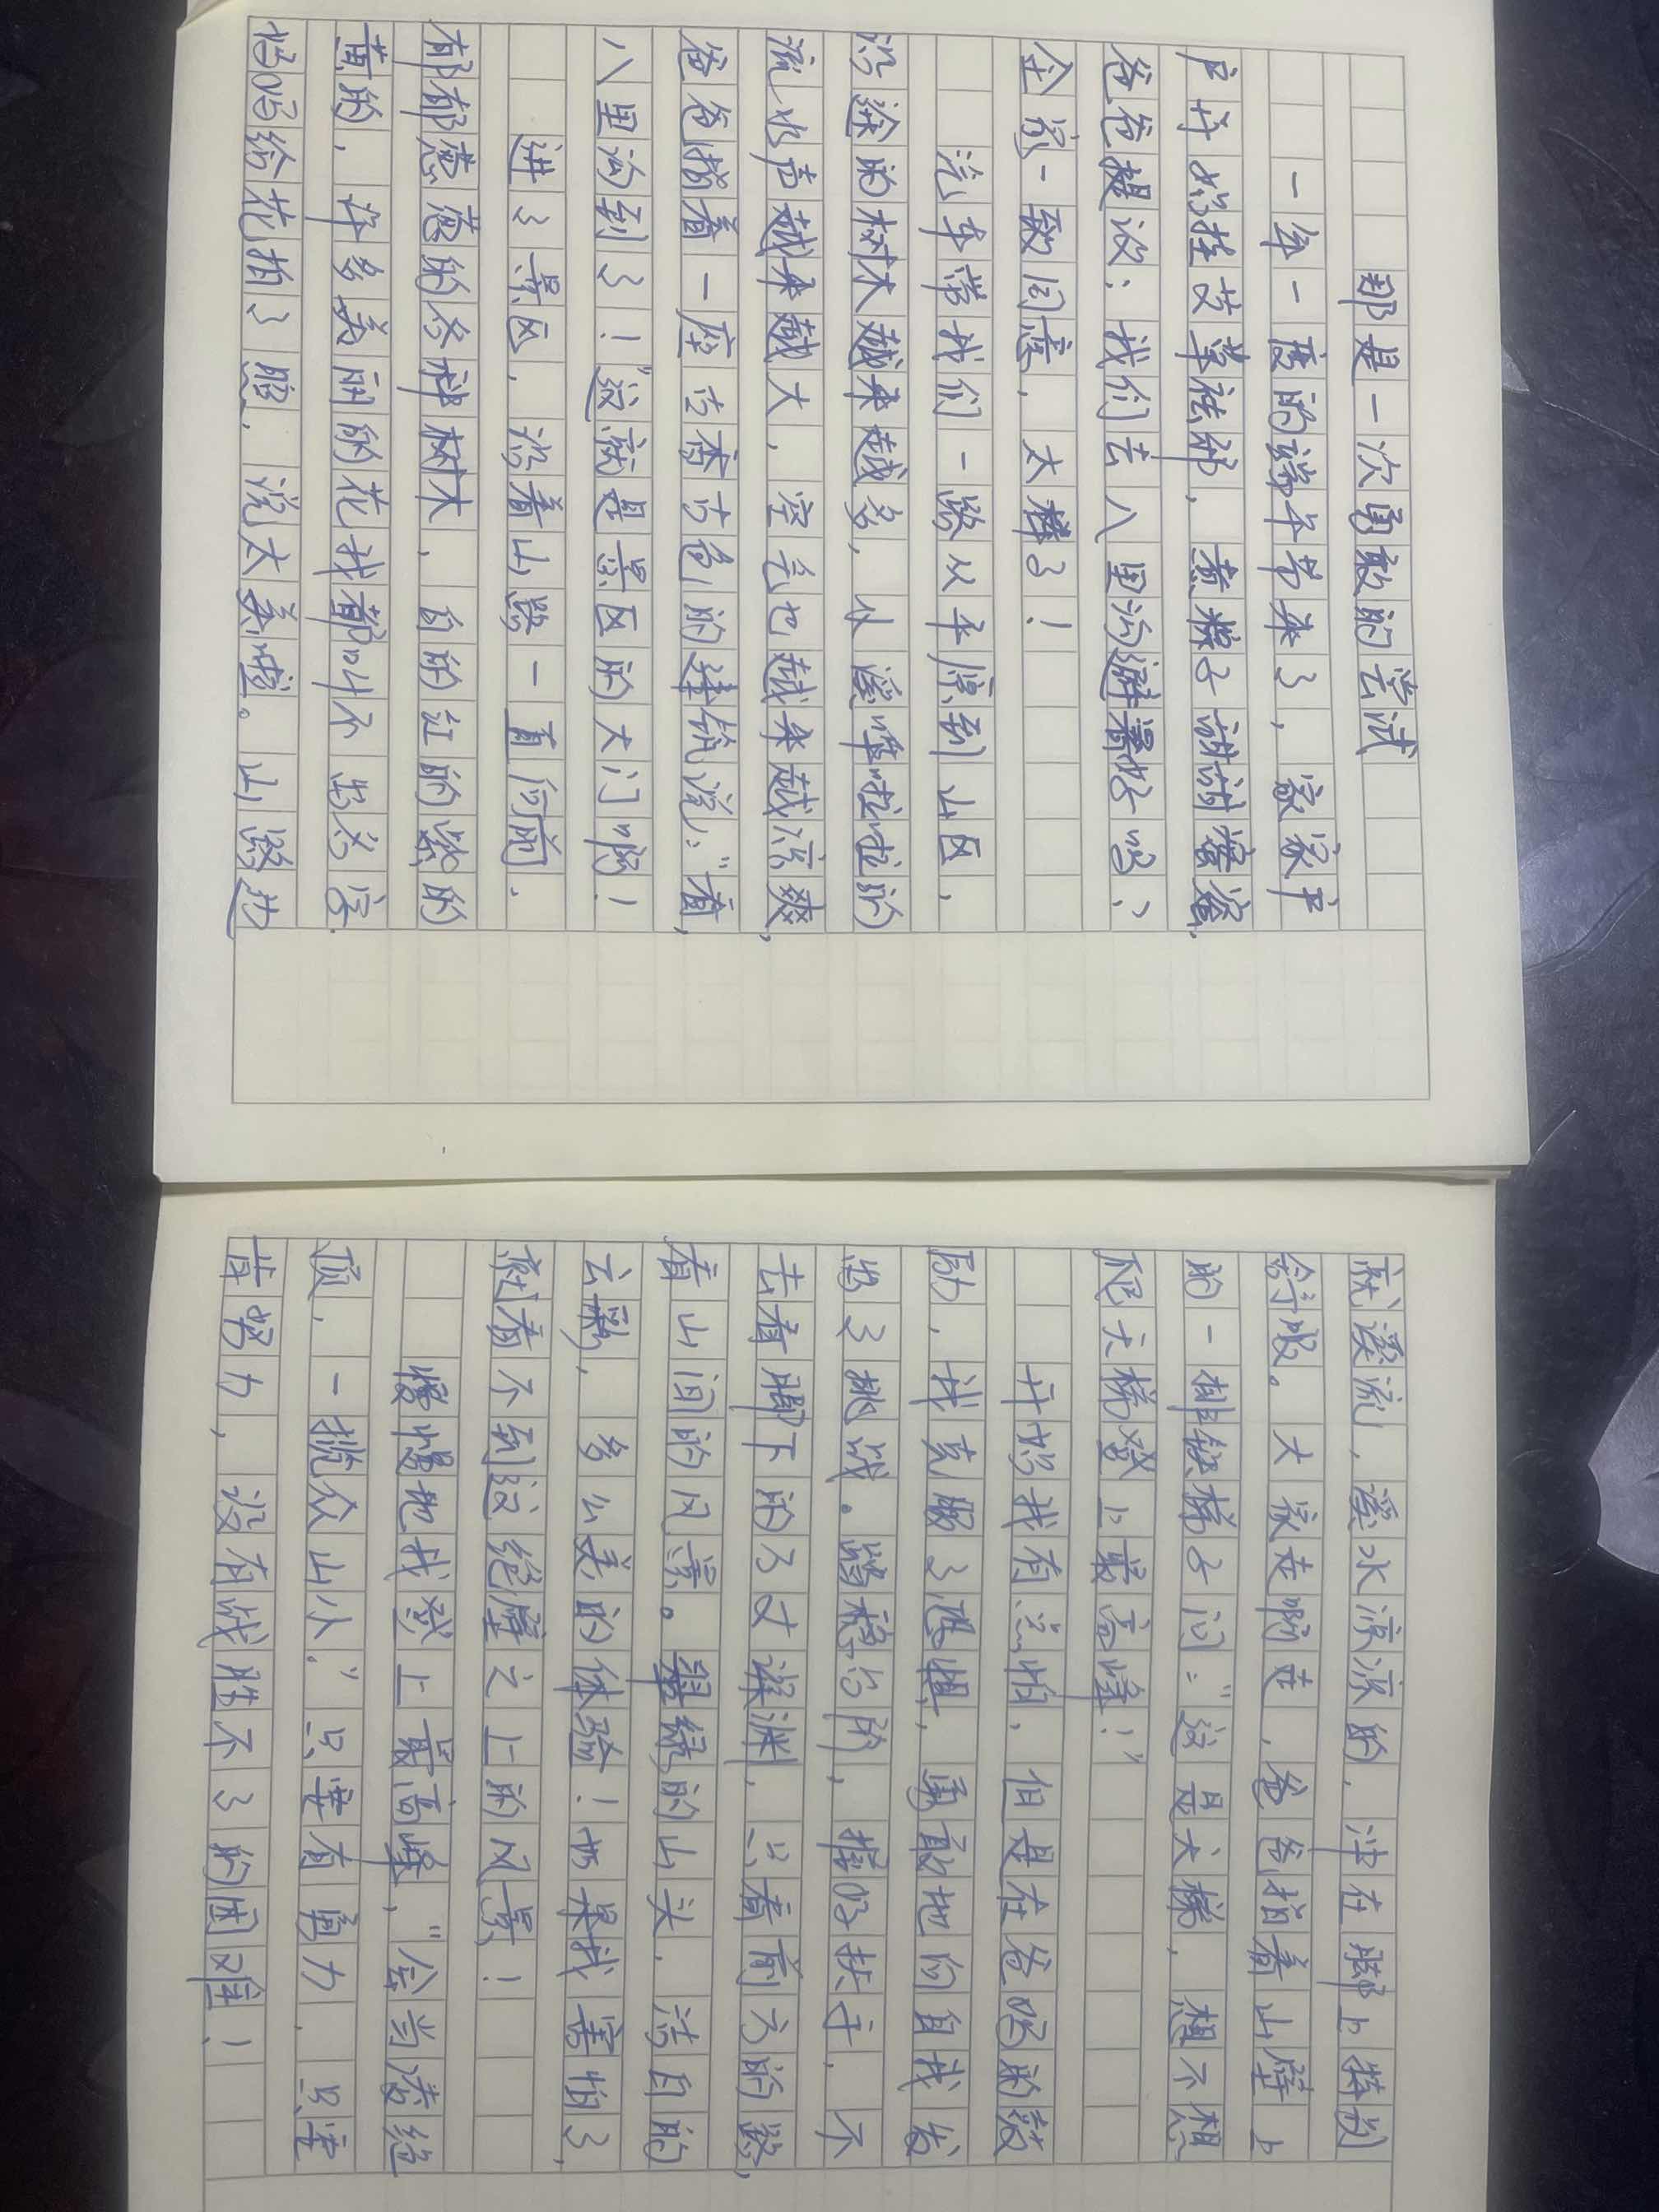 那是一次勇敢的尝试
一年一度的端午节来了，家家户
户开始挂艾草祛邪，煮粽子
爸爸提议：我们去八里沟避暑好吗？
全家一致同意，太棒了！
汽车带我们一路从平原到山区，
沿途的树木越来越多，从溪哗啦啦的
流水声越来越大，空气也越来越凉爽，
爸爸指着一座古香古色的建筑说：“看，
八里沟到了！”这就是景区的大门啊！
进了景区，沿着山路一直向前，
郁郁葱葱的各种树木，白的红的紫的
黄的，许多美丽的花我都叫不出名字，
妈妈给花拍了照，说太美啦。山路边
就溪流，溪水凉凉的，冲在脚上特别
舒服。大家走啊走，爸爸指着山壁上
的一排铁梯子问：“这是天梯，想不想
爬天梯登上最高峰！”
开始我有点怕，但是在爸妈的鼓
励，我克服了恐惧，勇敢地向自我发
出了挑战。踏稳台阶，握好扶手，不
去看脚下的万丈深渊，只看前方的路，
看山间的风景。翠绿的山头，洁白的
云彩，多么美的体验！如果我害怕了，
就看不到这绝壁之上的风景！
慢慢地我登上最高峰，“会当凌绝
顶，一揽众山小。”只要有勇力，只要
肯努力，没有战胜不了的困难！